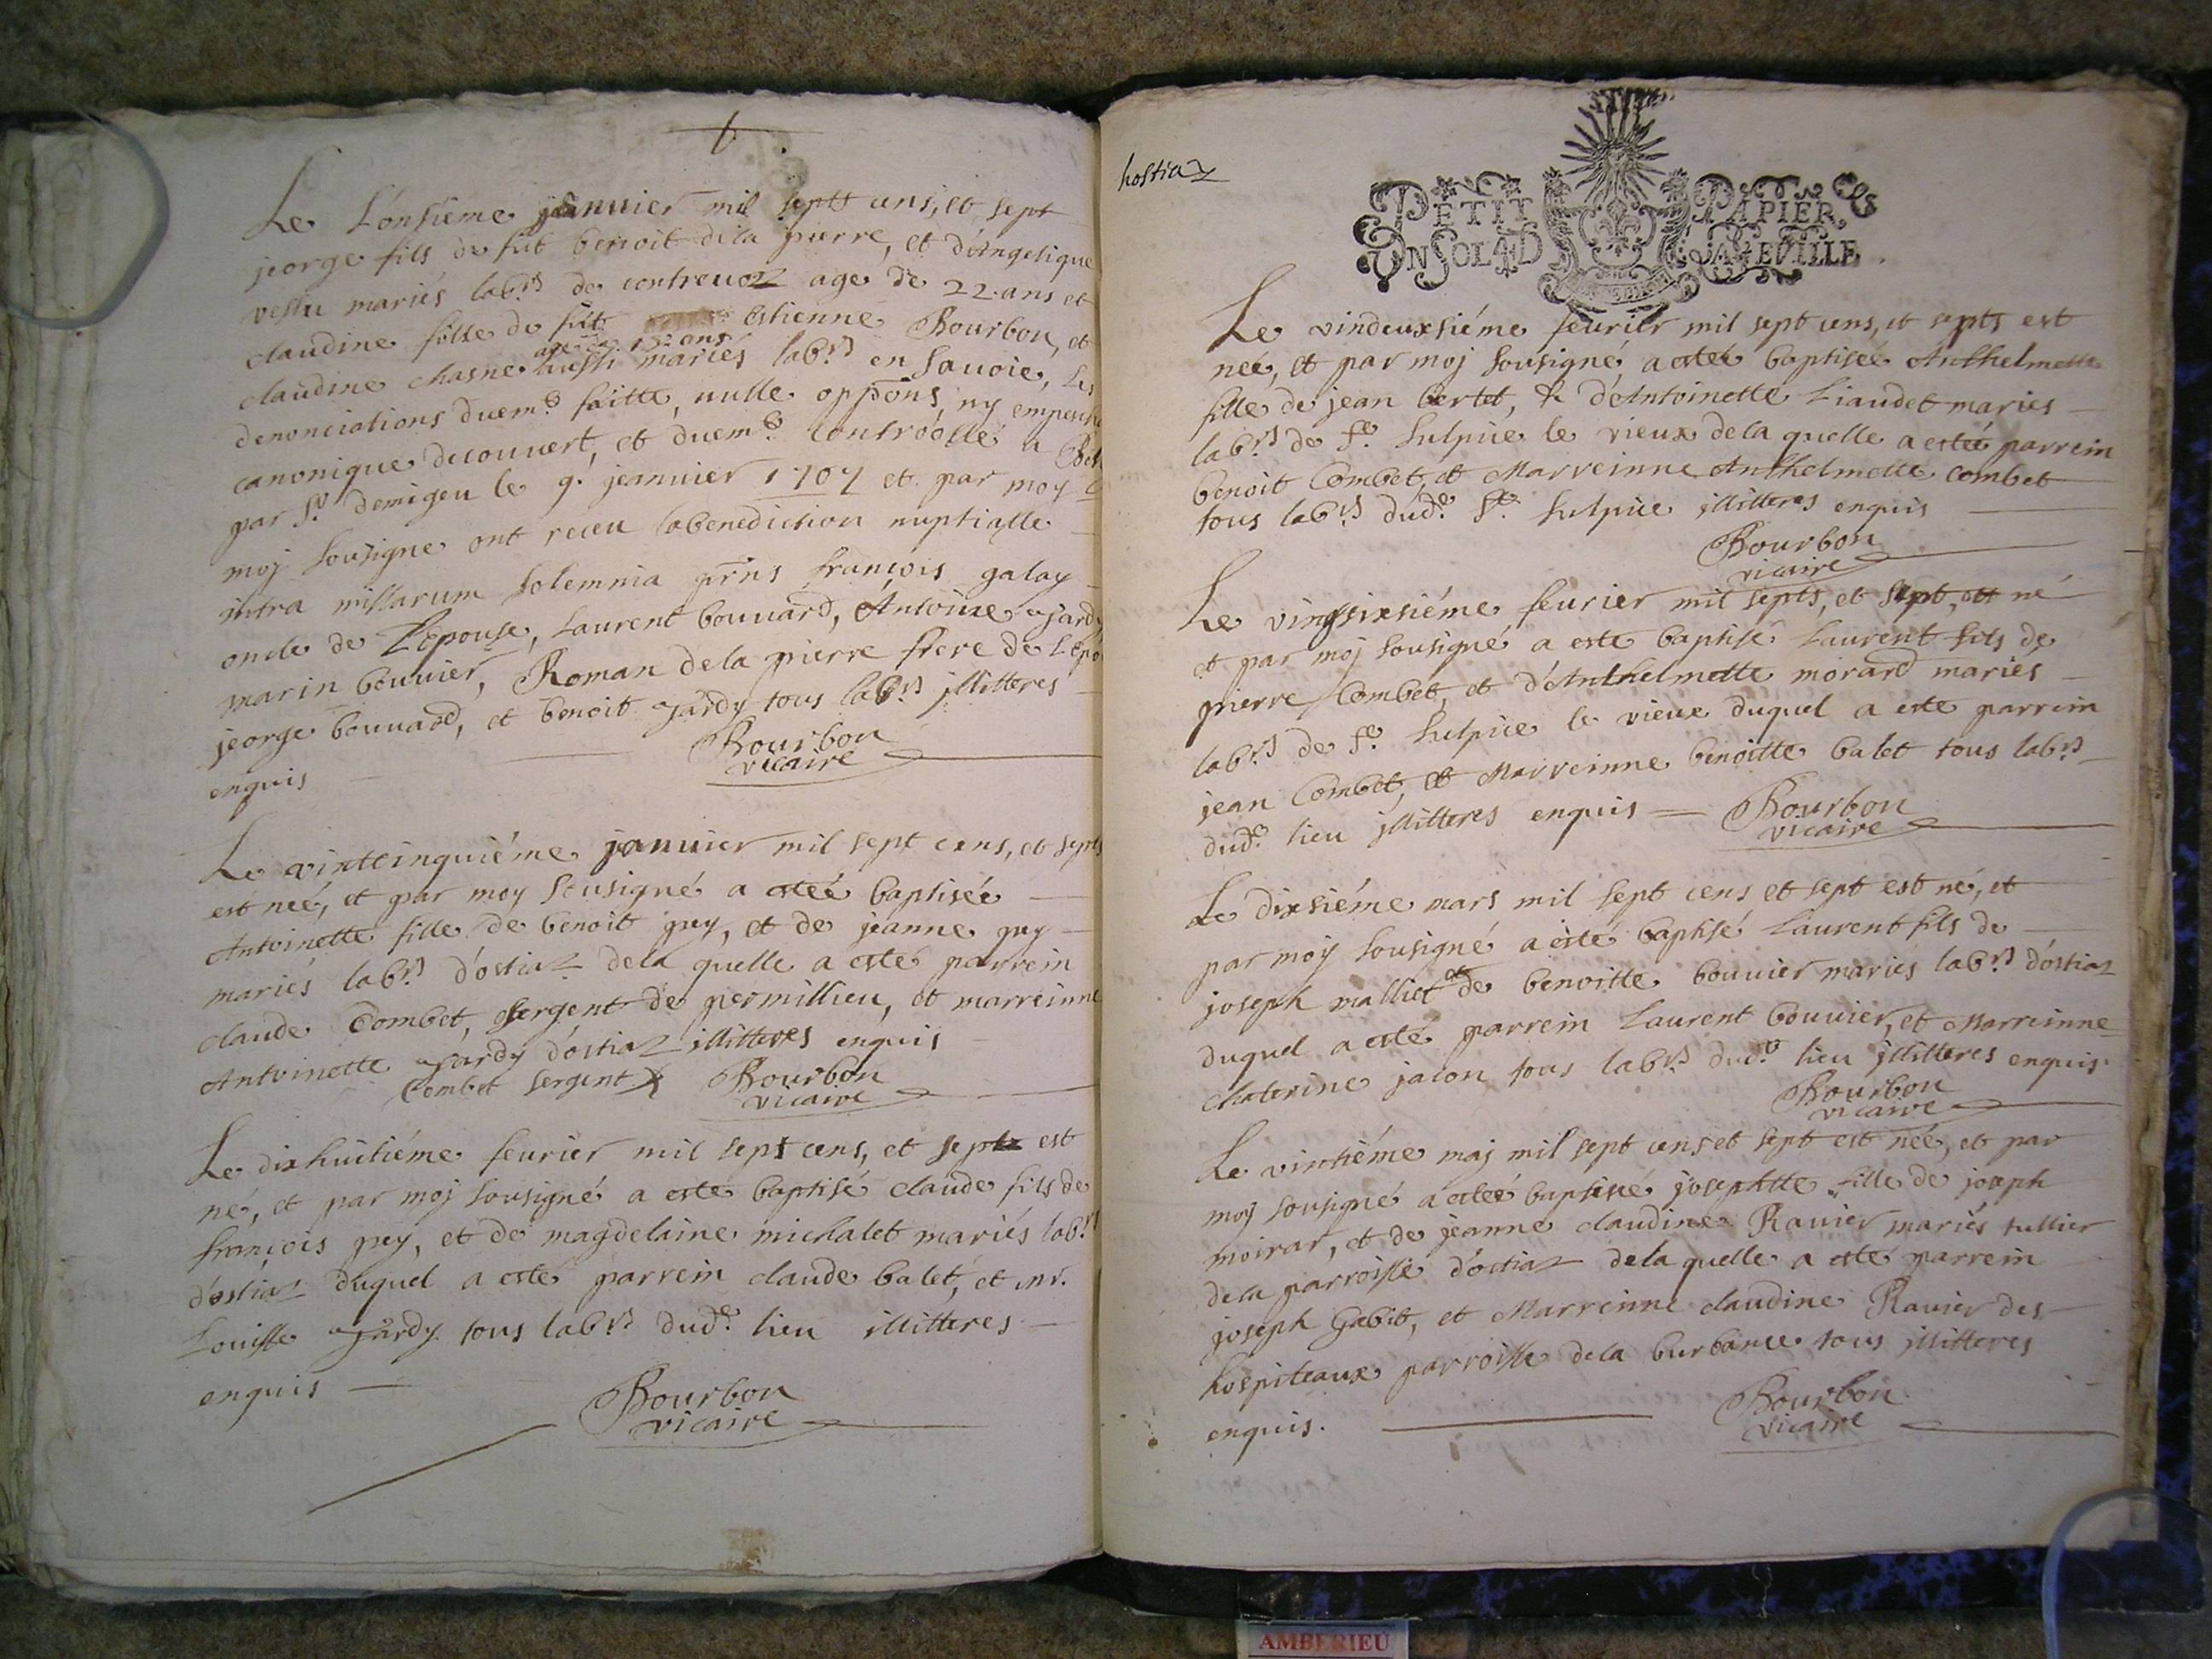 Le L'onsiéme jeanuier mil sept cens, et sept
jeorge fils de fût benoit dela pierre, et d'éangelique
vestu mariés labrs de contreuoz age de 22 ans et
claudine fille de fût estienne Bourbon, et
age de 132 ans
claudine chasne aussi mariés labrs en Sauoie, les
denonciations duemt faitte, nulle oppons, ny empeche
canonique decouuert, et duemt controollé a
par Sr demigeu le 9. jeanuier 1707 et par moy
moj Sousigne ont receu labenediction nuptialle
intra missarum solemnia pñs françois galay
oncle de L'Epouse, Laurent bouuard, Antoine jardy
marin bouuier, Roman dela pierre frere de L'Epo
jeorge bouuard, et benoit jardy tous labrs illitteres
enquis
Bourbon
vicaire
Le vintcinquiéme januier mil sept cens, et sept
est neé, et par moy Sousigné a esteé baptiseé
Antoinette fille de benoit pey, et de jeanne pey
mariés labrs d'ostiaz dela quelle a esté parrein
claude Combet, sergent de permillieu, et marreinne
Antoinette jardy d'ostiaz illitteres enquis
Combet Sergent Bourbon
vicaire
Le dixhuitiéme feurier mil sept cens, et sept est
né, et par moj Sousigné a esté baptisé claude fils de
françois pey, et de magdelaine michalet mariés labrs
d'ostiaz duquel a esté parrein claude balet, et mr.
Louisse jardy tous labrs dude lieu illitteres
enquis
Bourbon
vicaire
hostiaz
PETIT PAPIER
UN SOL 4 D LA FEVILLE
Le vindeuxsiéme feurier mil sept cens, et septs est
neé, et par moj Sousigné a esteé baptiseé Anthelmette
fille de jean bertet, & d'Antoinette Liaudet mariés
labrs de St. Sulpice le vieux dela quelle a esteé parrein
benoit Combet, et Marreinne Anthelmette combet
tous labrs dude St. Sulpice illitteres enquis
Bourbon
vicaire
Le vingsixsiéme feurier mil septs, et sept, est né
et par moj Sousigné a esté baptisé Laurent fils de
pierre Combet, et d'Anthelmette morard mariés
labrs de St. Sulpice le vieux duquel a esté parrein
jean Combet, et Marreinne benoitte balet tous labrs
dude lieu illitteres enquis Bourbon
vicaire
Le dixsiéme mars mil sept cens et sept est né, et
par moy Sousigné a esté baptisé Laurent fils de
joseph malliet et de benoitte bouuier mariés labrs d'ostiaz
duquel a esté parrein Laurent bouuier, et Marreinne
chaterine jacon tous labrs dude lieu illitteres enquis
Bourbon
vicaire
Le vintiéme maj mil sept cens et sept est neé, et par
moj Sousigné a esteé baptiseé josephtte fille de joseph
moirar, et de jeanne claudine Rauier mariés tullier
dela parroisse d'ostiaz dela quelle a esté parrein
joseph Gabit, et Marreinne claudine Rauier des
hospiteaux parroisse dela burbance tous illitteres
enquis.
Bourbon
vicaire
AMBERIEU